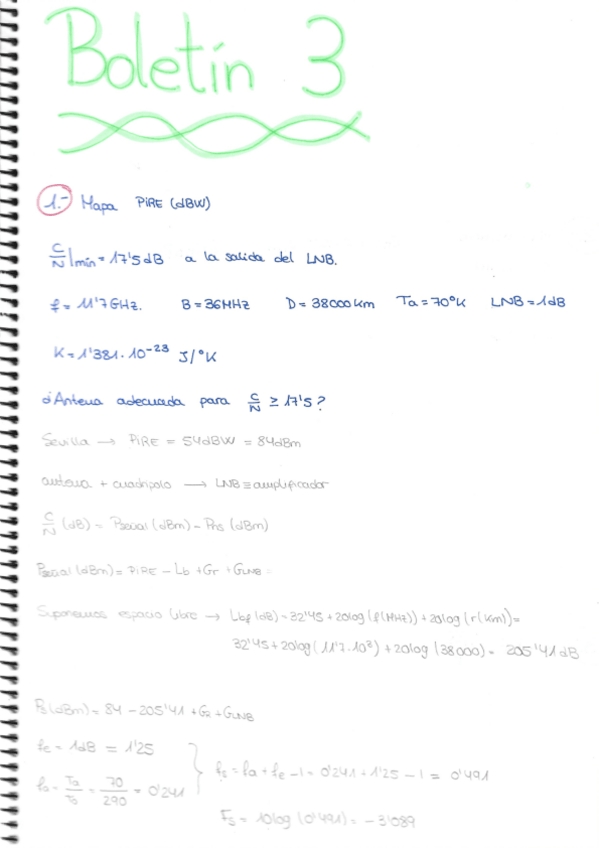 Boletín 3
1.- Mapa PiRE (dBW)
C/N|mín = 17'5 dB a la salida del LNB.
f = 11'7 GHz. B = 36MHz D = 38000 Km Ta = 70°K LNB = 1dB
K = 1'381·10^-23 J/°K
¿Antena adecuada para C/N ≥ 17'5?
Sevilla → PiRE = 54dBW = 84dBm
antena + cuadripolo → LNB ≡ amplificador
C/N (dB) = Pseñal (dBm) - Pns (dBm)
Pseñal (dBm) = PiRE - Lb + Gr + GLNB =
Suponemos espacio libre → Lbf (dB) = 32'45 + 20log (f(MHz)) + 20log (r(Km)) =
32'45 + 20log (11'7·10^3) + 20log (38000) = 205'41 dB
Ps (dBm) = 84 - 205'41 + GR + GLNB
fe = 1dB = 1'25
fa = Ta/To = 70/290 = 0'241 } fs = fa + fe - 1 = 0'241 + 1'25 - 1 = 0'491
Fs = 10log (0'491) = -3'089